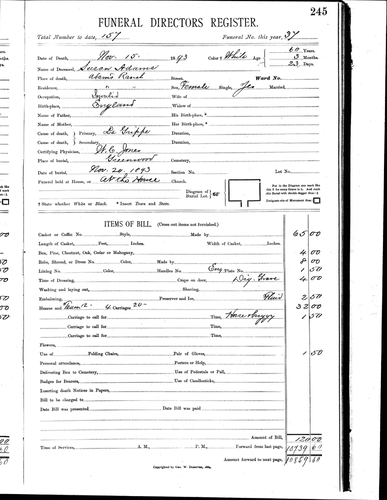 245
FUNERAL DIRECTORS REGISTER.
Total Number to date, 157 Funeral No. this year, 37
Date of Death, Nov. 15 - 1893 Color † White Age 60 Years
3 Months
23 Days
Name of Deceased, Susan Adams
Place of death, Adams Ranch Street, Ward No.
Residence, " " Sex, Female Single, Yes Married,
Occupation, Invalid Wife of
Birth-place, England Widow of
Name of Father, His Birth-place, *
Name of Mother, Her Birth-place, *
Cause of death, Primary, La Grippe Duration,
Cause of death, Secondary, Duration,
Certifying Physician, W. C. Jones
Place of burial, Greenwood Cemetery,
Date of burial, Nov. 20. 1893 Section No. Lot No.
Funeral held at House, or At the House Church.
Diagram of Burial Lot,
† State whether White or Black. * Insert Town and State.
ITEMS OF BILL. (Cross out items not furnished.)
Casket or Coffin No. Style, Made by 65 00
Length of Casket, Feet, Inches. Width of Casket, Inches.
Box, Pine, Chestnut, Oak, Cedar or Mahogany, 4 00
Robe, Shroud, or Dress No. Color, Made by 8 00
Lining No. Color, Handles No. Eng. Plate No. 1 50
Time of Dressing, Crape on door, 1 Dig. Grave 4 00
Washing and laying out, Shaving,
Embalming, Preserver and Ice, Fluid 2 50
Hearse and Team 12- 4 Carriages 20- 32 00
Carriage to call for Time, 1 50
Carriage to call for Time,
Carriage to call for Time,
Flowers,
Use of Folding Chairs, Pair of Gloves, 1 50
Personal attendance, Porters or Help,
Delivering Box to Cemetery, Use of Pedestals or Pall,
Badges for Bearers, Use of Candlesticks,
Inserting death Notices in Papers,
Bill to be charged to
Date Bill was presented Date Bill was paid
Amount of Bill, 120 00
Time of Services, A. M., P. M., Forward from last page,
Amount forward to next page,